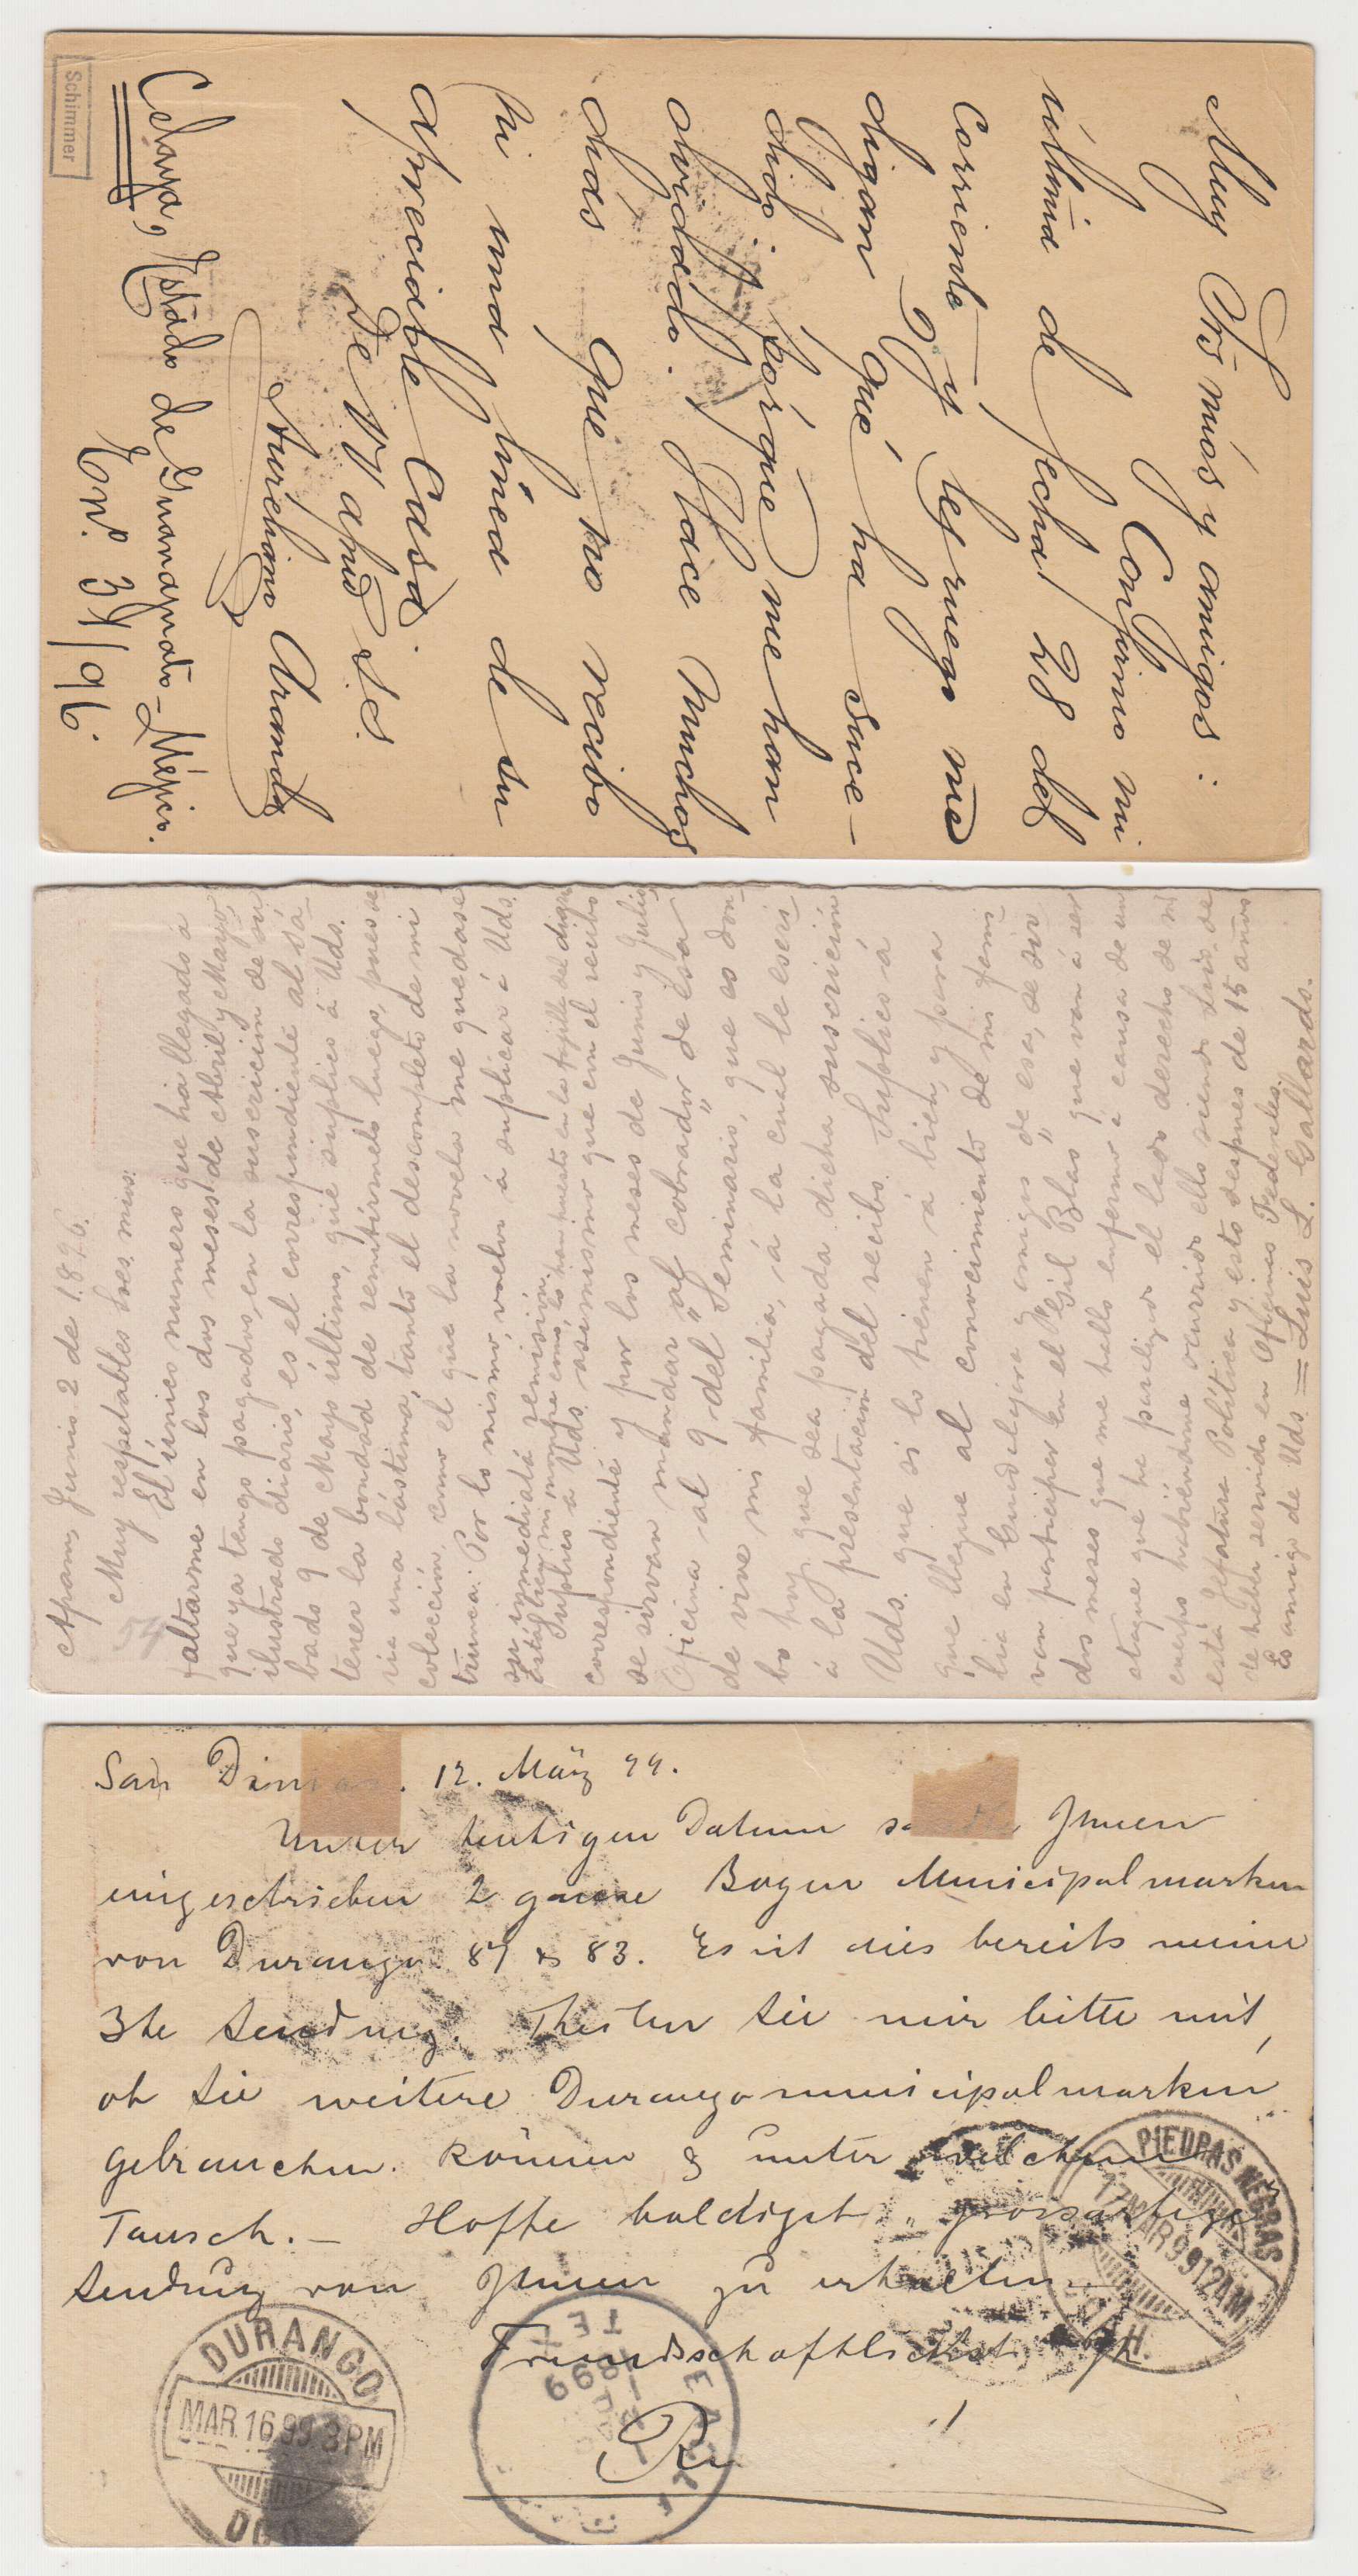 Muy Srs mios y amigos:
Confirmo mi
última de fecha 28 del
corriente y les ruego me
digan qué ha suce-
dido ¿pórque me han
olvidado. Hace muchos
dias que no recibo
ni una linea de su
apreciable Casa.
De V afmo S. S.
Aureliano Aranda
Celaya, Estado de Guanajuato - Méjico.
En. 31/96.
Schimmer
Apam, Junio 2 de 1896.
Muy respetables Sres. mios:
54
El único numero que ha llegado á
faltarme en los dos meses de Abril y Mayo,
que ya tengo pagados, en la suscrición de su
ilustrado diario, es el correspondiente al sá-
bado 9 de Mayo último, que suplico á Uds.
tener la bondad de remitírmelo luego, pues se
ria una lástima, tanto el descompleto de mi
colección, como el que la novela me quedase
trunca. Por lo mismo, vuelvo á suplicar á Uds.
su inmediata remisión.
Está bien mi nombre como lo han puesto en la fajilla del diario
Suplico á Uds. asimismo que en el recibo
correspondiente y por los meses de Junio y Julio
se sirvan mandar "al cobrador de esa
Oficina al 9 del "Seminario, que es don-
de vive mi familia, á la cual le escri-
bo hoy que sea pagada dicha suscrición
á la presentación del recibo. Suplico á
Uds. que si lo tienen á bien, y para
que llegue al conocimiento de mi fami-
lia en Guadalajara y amigos de esa, se sir
van participar en el "Gil Blas" que van á ser
dos meses que me hallo enfermo á causa de un
ataque que he paralizado el lado derecho de mi
cuerpo habiéndome ocurrido ello siendo Srio. de
esta Jefatura Política y esto despues de 15 años
de haber servido en Oficinas Federales.
Es amigo de Uds. = Luis L. Gallardo.
San Dimas. 12. März 99.
Unter heutigen Datum sandte Ihnen
eingeschrieben 2 ganze Bogen Municipalmarken
von Durango 87 & 83. Es ist dies bereits meine
3te Sendung. Theilen Sie mir bitte mit,
ob Sie weitere Durangomunicipalmarken
gebrauchen können & unter welchem
Tausch. — Hoffe baldigst grossartige
Sendung von Ihnen zu erhalten.
Freundschaftlichst
PIEDRAS NEGRAS
17 MAR 99 12 AM
DURANGO
MAR. 16 99 3 PM
DGO
EAGLE
TEX
1899